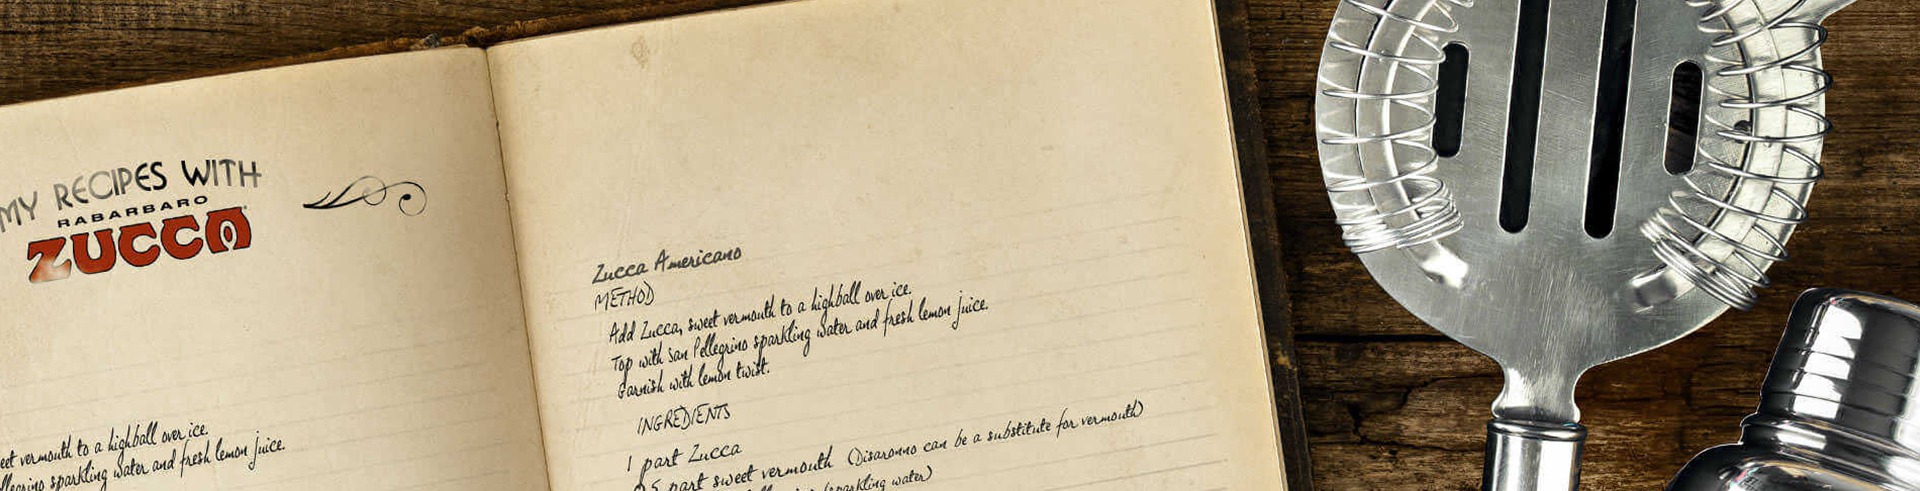 MY RECIPES WITH
RABARBARO
ZUCCA
vermouth to a highball over ice.
sparkling water and fresh lemon juice.
Zucca Americano
METHOD
Add Zucca, sweet vermouth to a highball over ice.
Top with San Pellegrino sparkling water and fresh lemon juice.
Garnish with lemon twist.
INGREDIENTS
1 part Zucca
5 part sweet vermouth (Disaronno can be a substitute for vermouth)
(sparkling water)